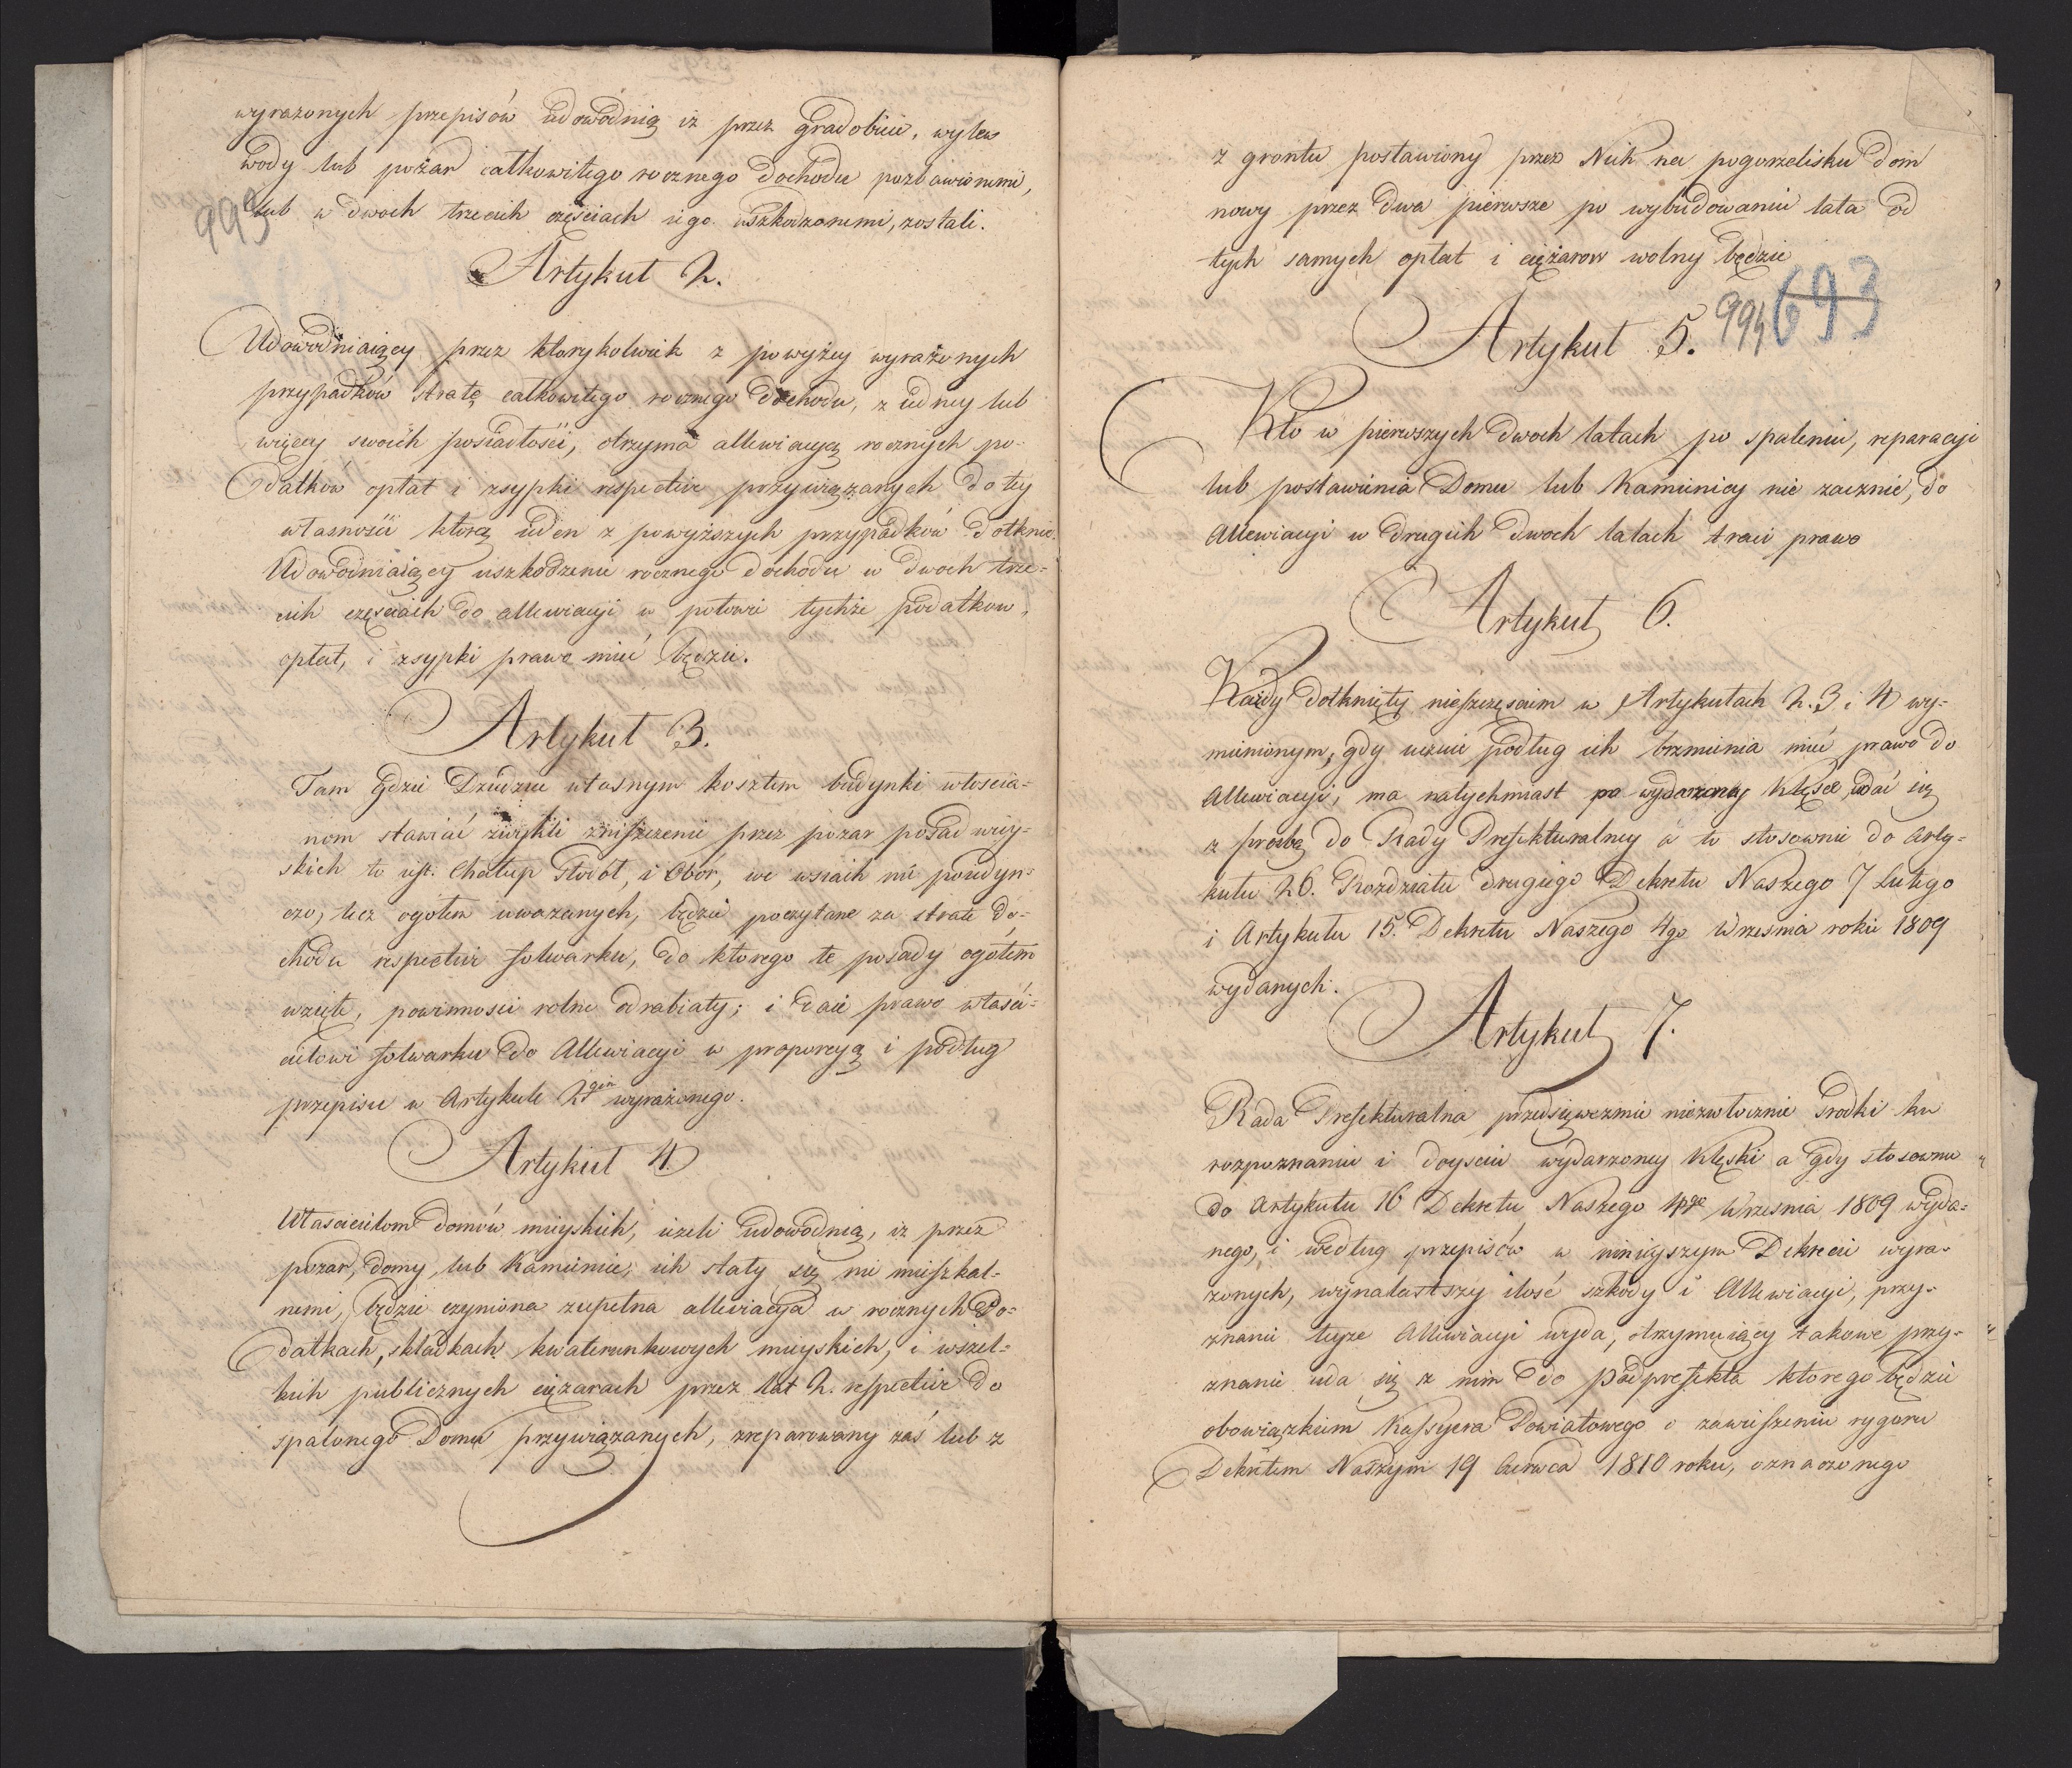 wyrazonych przepisów udowodnią iż przez gradobicie, wylew
wody lub pożar całkowitego rocznego dochodu pozbawionemi,
993
lub w dwoch trzecich częściach iego uszkodzonemi, zostali.
Artykuł 2.
Udowodniaiący przez ktorykolwiek z powyżey wyrażonych
przypadków stratę całkowitego rocznego dochodu, z iedney lub
więcey swoich posiadłości, otrzyma allewiacyą rocznych po-
datków opłat i zsypki respective przywiązanych do tey
własności ktorą ieden z powyższych przypadków dotknie.
Udowodniaiący uszkodzenie rocznego dochodu w dwoch trze-
cich częściach do allewiacyi w połowie tychże podatkow,
opłat, i zsypki prawo mieć będzie.
Artykuł 3.
Tam gdzie Dziedzic własnym kosztem budynki włościa-
nom stawiać zwykli zniszczenie przez pozar posad wiey-
skich to iest: Chałup Stodół, i Obór, we wsiach nie poiedyn-
czo, lecz ogołem uwazanych, będzie poczytane za stratę do-
chodu respective folwarku, do ktorego te posady ogółem
wzięte, powinności rolne odrabiały; i daie prawo właści-
cielowi folwarku do Allewiacyi w proporcyą i podług
przepisu w Artykule 2gim wyrażonego.
Artykuł 4
Właścicielom domów mieyskich, ieżeli udowodnią, iż przez
pozar, domy, lub Kamienice, ich stały się nie mieszkal-
nemi, będzie czyniona zupełna allewiacya w rocznych Po-
datkach, składkach kwaterunkowych mieyskich, i wszel-
kich publicznych ciężarach przez lat 2. respective do
spalonego Domu przywiązanych, zreparowany zaś lub z
z grontu postawiony przez Nich na pogorzelisku dom
nowy przez dwa pierwsze po wybudowaniu lata od
tych samych opłat i ciężarow wolny będzie
994 693
Artykuł 5.
Kto w pierwszych dwoch latach po spaleniu, reparacyi
lub postawienia Domu lub Kamienicy nie zacznie, do
Allewiacyi w drugich dwoch latach traci prawo
Artykuł 6.
Każdy dotknięty nieszczęściem w Artykułach 2. 3 i 4 wy-
mienionym, gdy uczuie podług ich brzmienia mieć prawo do
Allewiacyi, ma natychmiast po wydarzoney Klęsce, udać się
z prośbą do Rady Prefekturalney a to stosownie do Arty-
kułu 26. Rozdziału drugiego Dekretu Naszego 7 Lutego
i Artykułu 15. Dekretu Naszego 4go Września roku 1809
wydanych.
Artykuł 7.
Rada Prefekturalna przedsięwezmie niezwłocznie środki ku
rozpoznaniu i doyściu wydarzoney Klęski a gdy stosownie
do Artykułu 16 Dekretu Naszego 4go Września 1809 wyda-
nego, i według przepisów w ninieyszym Dekrecie wyra-
zonych, wynalazłszy ilość szkody i Allewiacyi, przy-
znanie teyze Allewiacyi wyda, otrzymuiący takowe przy-
znanie uda się z nim do podprefekta ktorego będzie
obowiązkiem Kassyera Powiatowego o zawieszeniu rygoru
Dekretem Naszym 19 Czerwca 1810 roku, oznaczonego